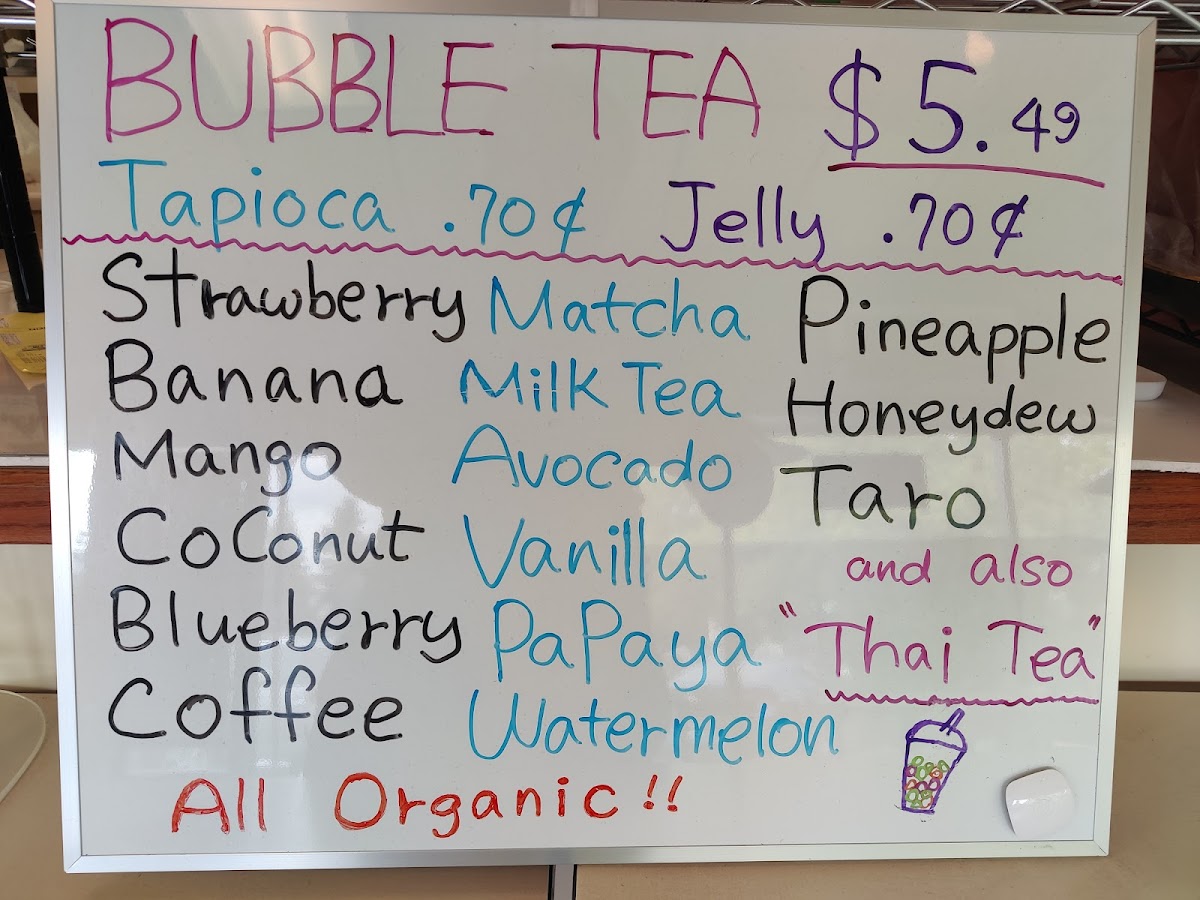 BUBBLE TEA $5.49
Tapioca .70¢ Jelly .70¢
Strawberry
Banana
Mango
CoConut
Blueberry
Coffee
Matcha
Milk Tea
Avocado
Vanilla
PaPaya
Watermelon
Pineapple
Honeydew
Taro
and also
"Thai Tea"
All Organic!!